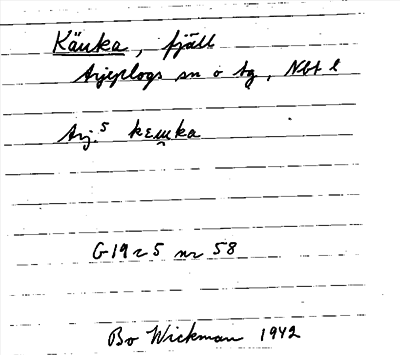 Käuka, fjäll
Arjeplogs sn o tg, Nbt l
Arj.⁵ kɛu̯ka
G19 r 5 nr 58
Bo Wickman 1942